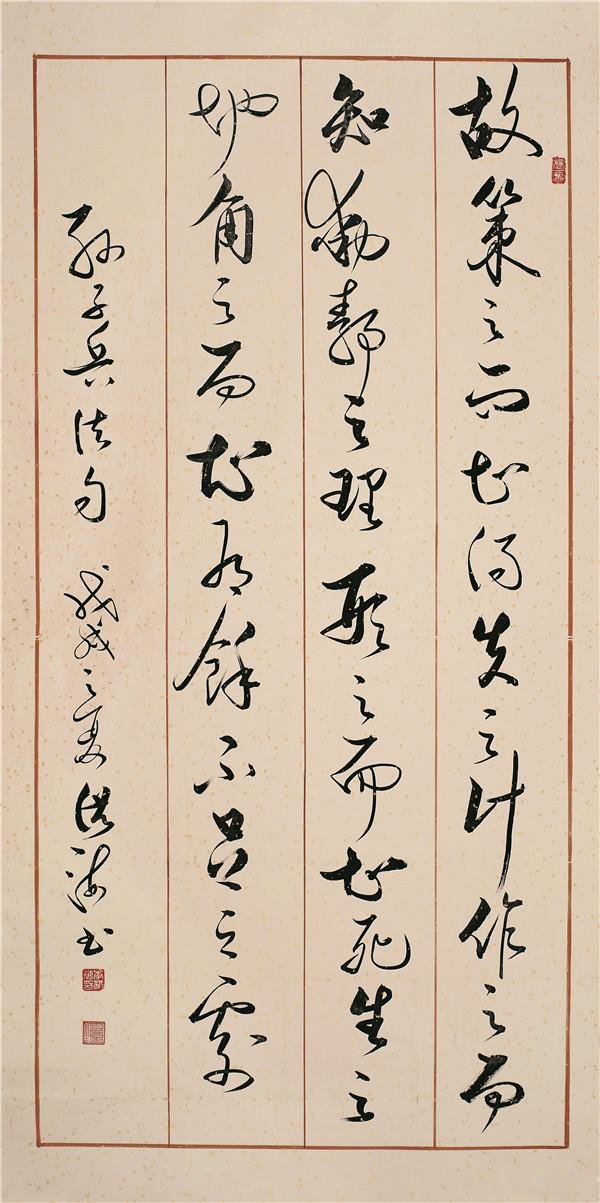 故策之而知得失之計作之而
知動靜之理形之而知死生之
地角之而知有餘不足之處
孫子兵法句 戊戌之夏 海書